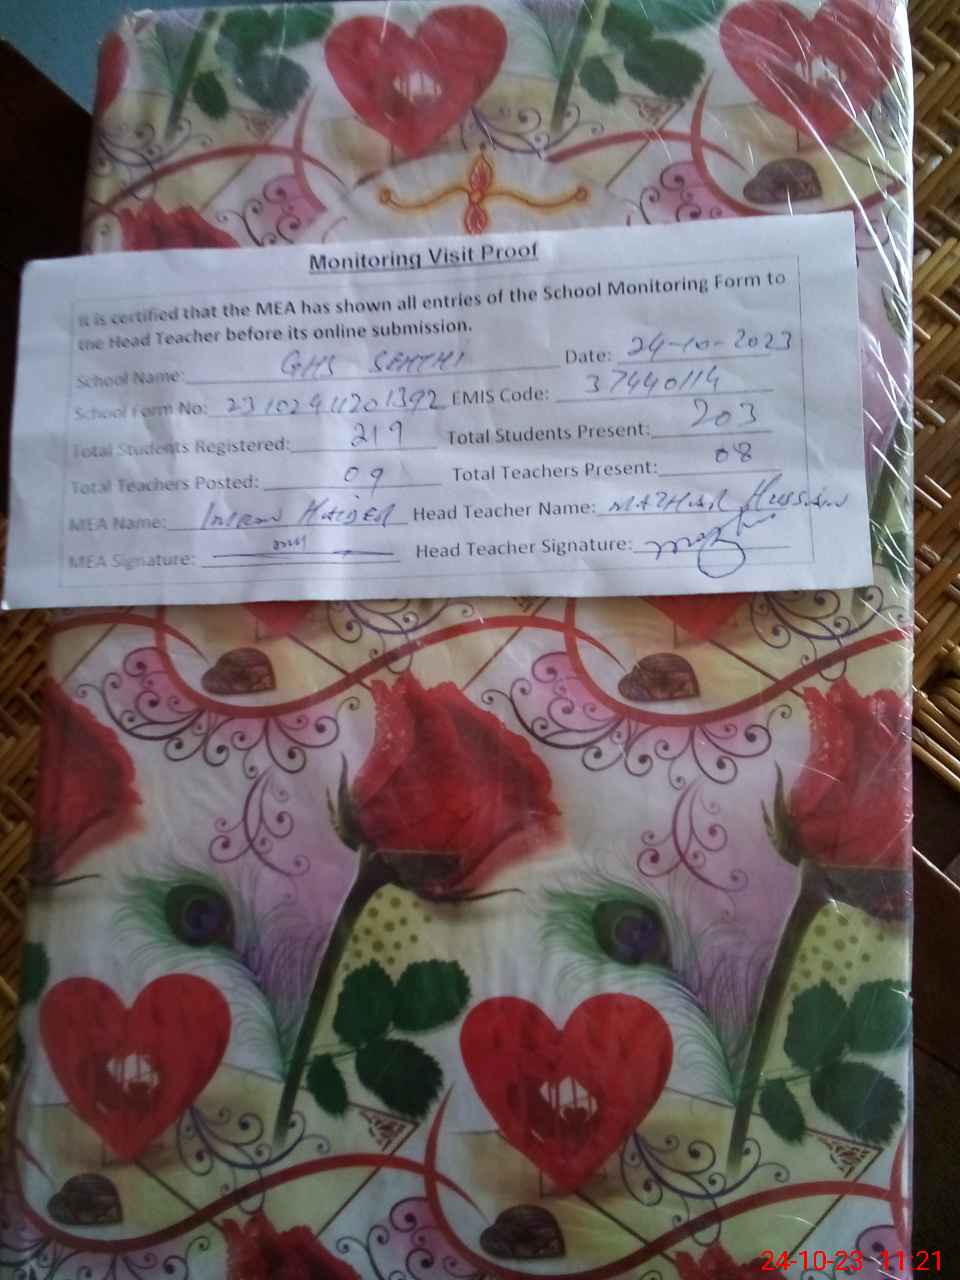 Monitoring Visit Proof
It is certified that the MEA has shown all entries of the School Monitoring Form to
the Head Teacher before its online submission.
School Name: GHS SEHTHI Date: 24-10-2023
School Form No: 23102411201392 EMIS Code: 37440114
Total Students Registered: 219 Total Students Present: 203
Total Teachers Posted: 09 Total Teachers Present: 08
MEA Name: Imran Haider Head Teacher Name: MAZHAR HUSSAIN
MEA Signature: Head Teacher Signature:
24-10-23 11:21